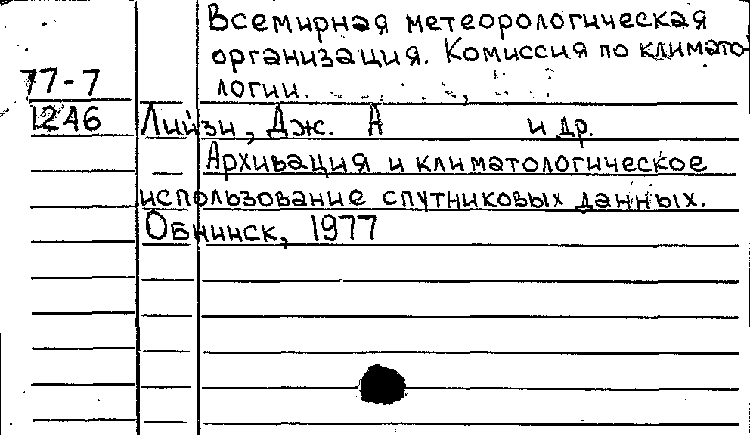 Всемирная метеорологическая
организация. Комиссия по климато-
логии.
77-7
1246
Лийзи, Дж. А и др.
Архивация и климатологическое
использование спутниковых данных.
Обнинск, 1977